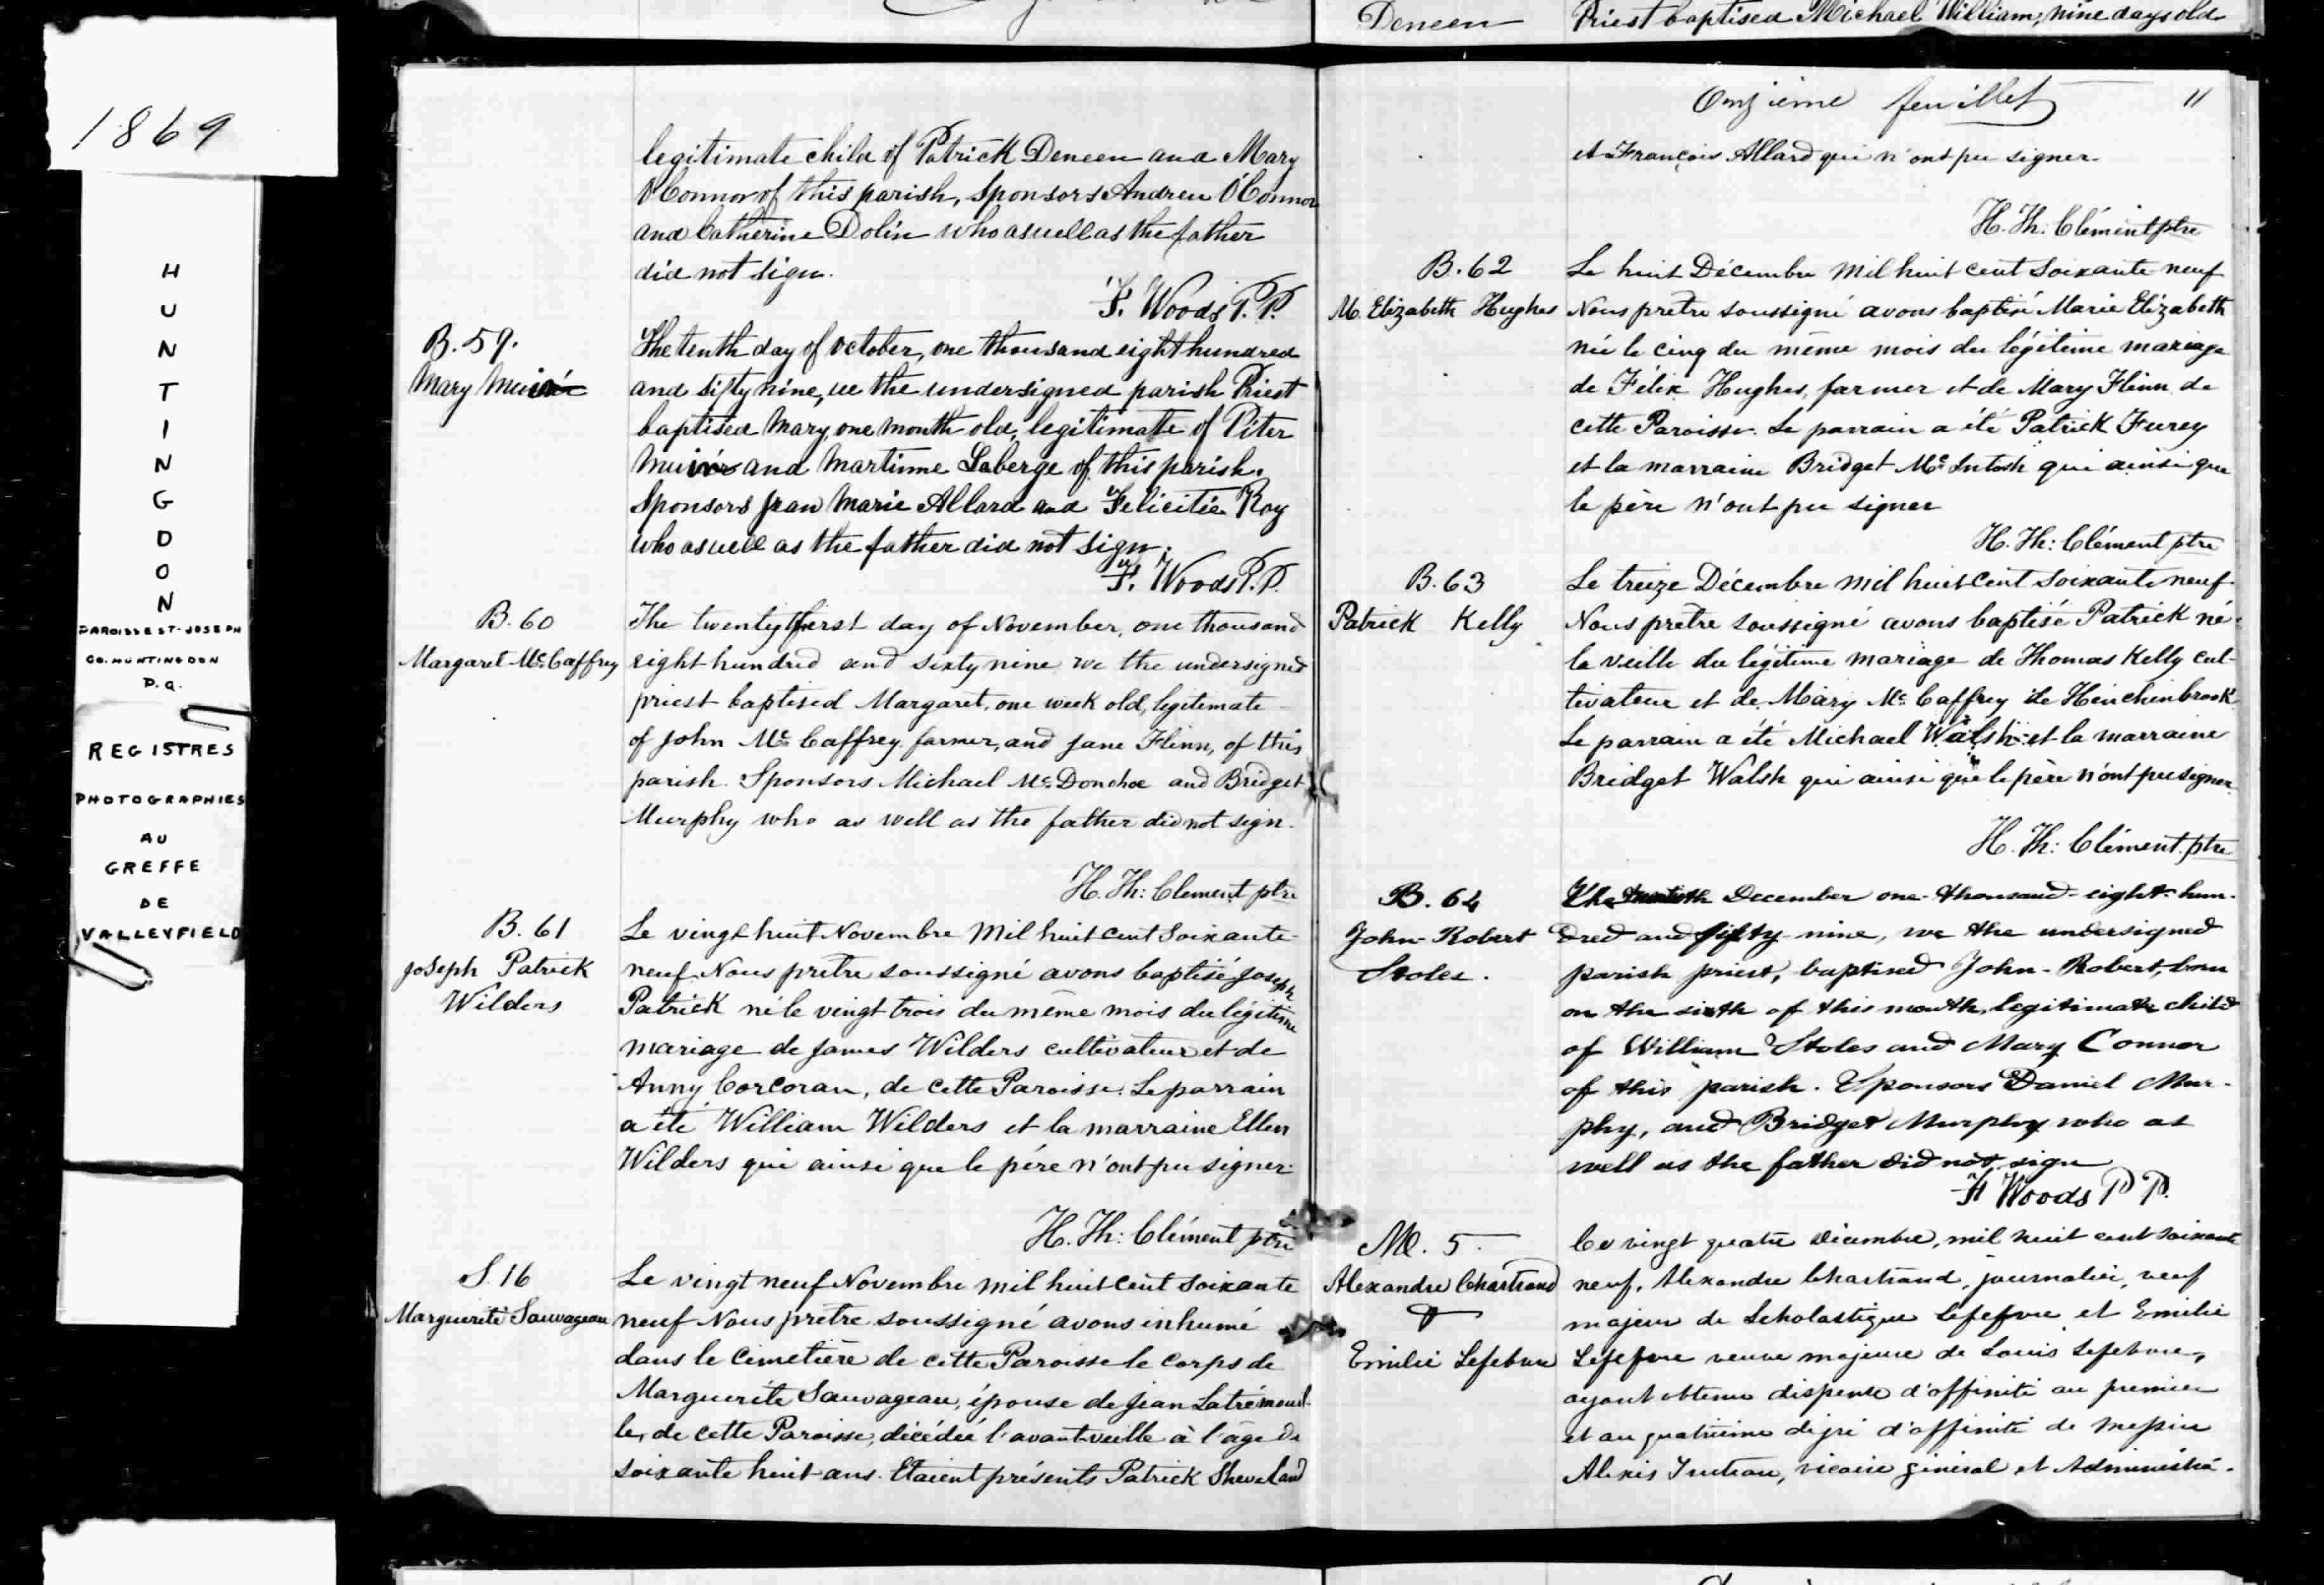 1869
HUNTINGDON
PAROISSE ST-JOSEPH
CO. HUNTINGDON
P.Q.
REGISTRES
PHOTOGRAPHIES
AU
GREFFE
DE
VALLEYFIELD
legitimate child of Patrick Deneen and Mary
O'Connor of this parish, Sponsors Andrew O'Connor
and Catherine Dolin who as well as the father
did not sign.
F. Woods P.P.
B. 59.
Mary Muir
The tenth day of October, one thousand eight hundred
and sifty nine, we the undersigned parish Priest
baptised Mary, one month old, legitimate of Piter
Muir and Martinne Laberge of this parish.
Sponsors Jean Marie Allard and Felicitée Roy
who as well as the father did not sign.
F. Woods P.P.
B. 60
Margaret McCaffrey
The twenty first day of November, one thousand
eight hundred and sixty nine we the undersigned
priest baptised Margaret, one week old, legitimate
of John McCaffrey farmer, and Jane Flinn, of this
parish. Sponsors Michael McDonohoe and Bridget
Murphy who as well as the father did not sign.
H. Th: Clement ptre
B. 61
Joseph Patrick
Wilders
Le vingt huit Novembre Mil huit cent Soixante-
neuf Nous prêtre soussigné avons baptisé Joseph
Patrick né le vingt trois du même mois du légitime
mariage de James Wilders cultivateur et de
Anny Corcoran, de cette Paroisse. Le parrain
a été William Wilders et la marraine Ellen
Wilders qui ainsi que le père n'ont pu signer.
H. Th: Clément ptre
S. 16
Marguerite Sauvageau
Le vingt neuf Novembre mil huit cent soixante
neuf Nous prêtre soussigné avons inhumé
dans le Cimetière de cette Paroisse le corps de
Marguerite Sauvageau, épouse de Jean Latrémouil-
le, de cette Paroisse, décédée l'avant veille à l'âge de
soixante huit ans. Etaient présents Patrick Sheveland
Deneen
Priest baptised Michael William, nine days old
Onzième feuillet 11
et François Allard qui n'ont pu signer.
H. Th: Clément ptre
B. 62
M. Elizabeth Hughes
Le huit Décembre Mil huit cent Soixante neuf
Nous prêtre soussigné avons baptisé Marie Elizabeth
née le cinq du même mois du légitime mariage
de Félix Hughes, farmer et de Mary Flinn de
cette Paroisse. Le parrain a été Patrick Furey
et la marraine Bridget McIntosh qui ainsi que
le père n'ont pu signer
H. Th: Clément ptre
B. 63
Patrick Kelly
Le treize Décembre mil huit cent soixante neuf
Nous prêtre soussigné avons baptisé Patrick né
la veille du légitime mariage de Thomas Kelly cul-
tivateur et de Mary McCaffrey de Hinchinbrook
Le parrain a été Michael Walsh et la marraine
Bridget Walsh qui ainsi que le père n'ont pu signer.
H. Th: Clément ptre
B. 64
John-Robert
Stoles.
The December one-thousand-eight-hun-
dred and fifty-nine, we the undersigned
parish priest, baptised John-Robert, born
on the sixth of this month, legitimate child
of William Stoles and Mary Connor
of this parish. Sponsors Daniel Mur-
phy, and Bridget Murphy who as
well as the father did not sign
F Woods P P.
M. 5.
Alexandre Chartrand
&
Emilie Lefebvre
Ce vingt quatre décembre, mil huit cent soixante
neuf, Alexandre Chartrand, journalier, veuf
majeur de Scholastique Lefefvre et Emilie
Lefefvre veuve majeure de Louis Lefebvre,
ayant obtenu dispense d'affinité au premier
et au quatrième dégré d'affinité de messire
Alexis Truteau, vicaire général et Administra-